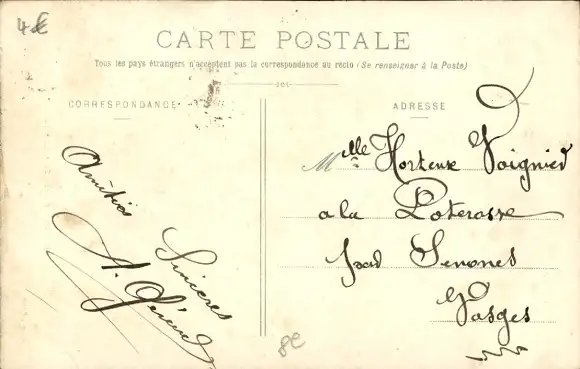 4€
CARTE POSTALE
Tous les pays étrangers n'acceptent pas la correspondance au recto (Se renseigner à la Poste)
CORRESPONDANCE
ADRESSE
Amitiés
Sincères
A.
Mlle Hortense Voignier
a la Poterosse
par Senones
Vosges
8€